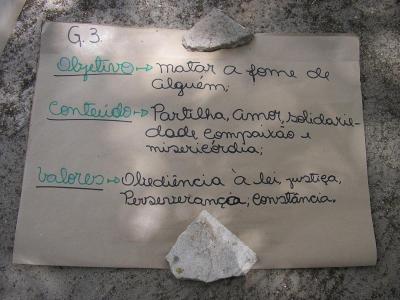 G.3
Objetivo → matar a fome de
alguém;
Conteúdo → Partilha, amor, solidarie-
dade compaixão e
misericórdia;
Valores → Obediência à lei, justiça,
Perseverança, constância.